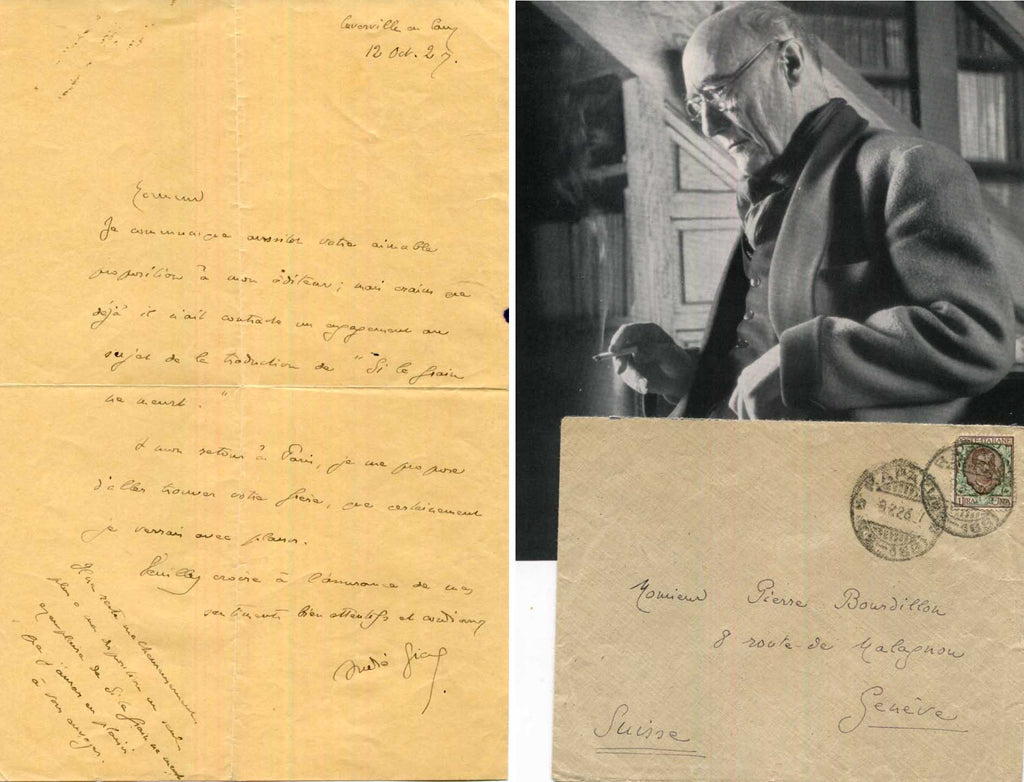 Cuverville en Caux
12 Oct. 27.
Monsieur
Je communique aussitôt votre aimable
proposition à mon éditeur ; mais crains que
déjà il n'ait contracté un engagement au
sujet de la traduction de "Si le Grain
ne meurt."
A mon retour à Paris, je me propose
d'aller trouver votre frère, que certainement
je verrai avec plaisir.
Veuillez croire à l'assurance de mes
sentiments bien attentifs et cordiaux
André Gide
Il ne reste malheureusement
plus à ma disposition un seul
exemplaire de Si le Grain ne meurt
que j'aurais eu plaisir
à vous envoyer.
POSTE ITALIANE
1 LIRA
Monsieur Pierre Bourdillon
8 route de Malagnou
Genève
Suisse